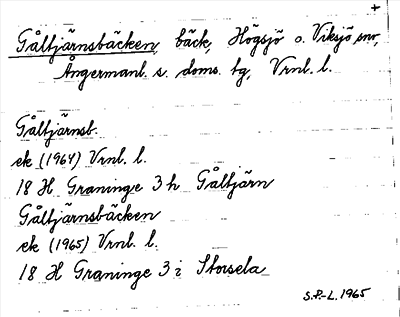 +
Gåltjärnsbäcken, bäck, Högsjö o. Viksjö snr,
Ångermanl. s. doms. tg, Vrnl. l.
Gåltjärnsb.
ek (1964) Vrnl. l.
18 H Graninge 3 h Gåltjärn
Gåltjärnsbäcken
ek (1965) Vrnl. l.
18 H Graninge 3 i Storsela
S.P.-L. 1965